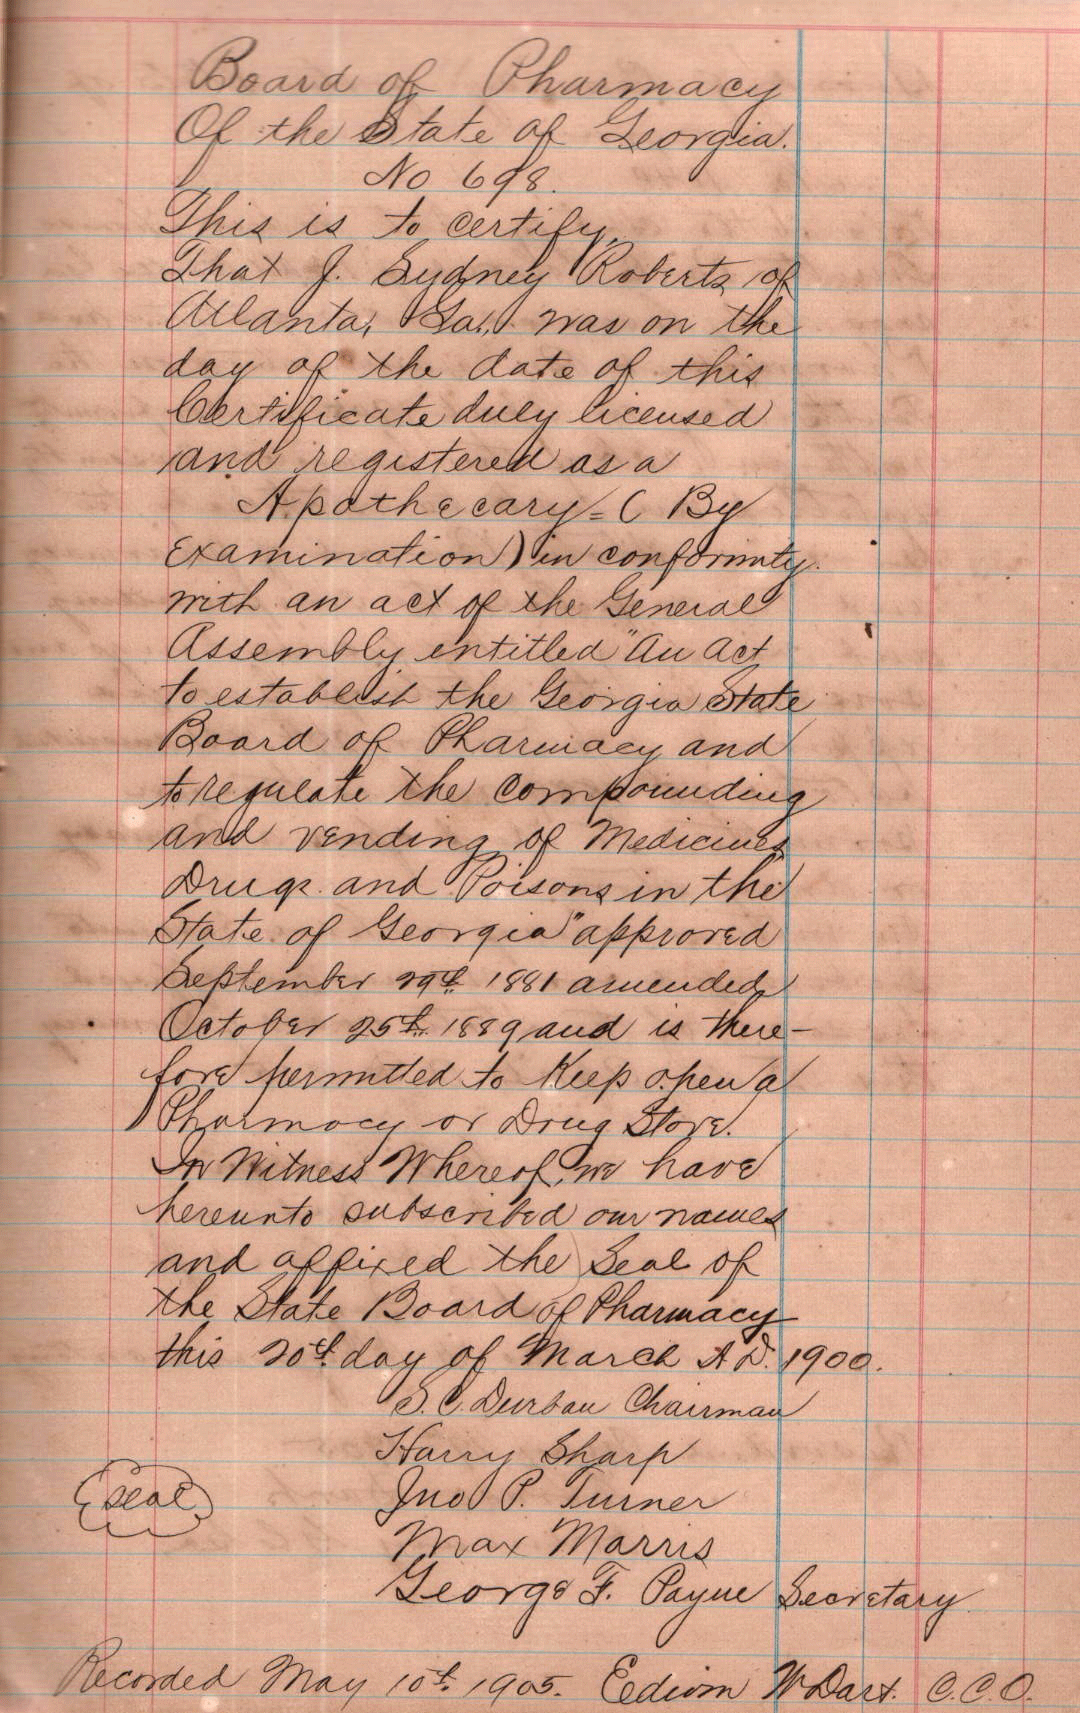 Board of Pharmacy
Of the State of Georgia.
No 698.
This is to certify,
That J. Sydney Roberts, of
Atlanta, Ga., was on the
day of the date of this
Certificate duly licensed
and registered as a
Apothecary - ( By
Examination) in conformity
with an act of the General
Assembly entitled "An Act
to establish the Georgia State
Board of Pharmacy and
to regulate the compounding
and vending of Medicines
Drugs and Poisons in the
State of Georgia" approved
September 29th 1881 amended
October 25th 1889 and is there-
fore permitted to Keep open a
Pharmacy or Drug Store.
In Witness Whereof, we have
hereunto subscribed our names
and affixed the Seal of
the State Board of Pharmacy
this 20th day of March A.D. 1900.
S. C. Durban Chairman
Harry Sharp
Seal
Jno P. Turner
Max Marris
George F. Payne Secretary
Recorded May 10th 1905. W Dart. C.C.O.